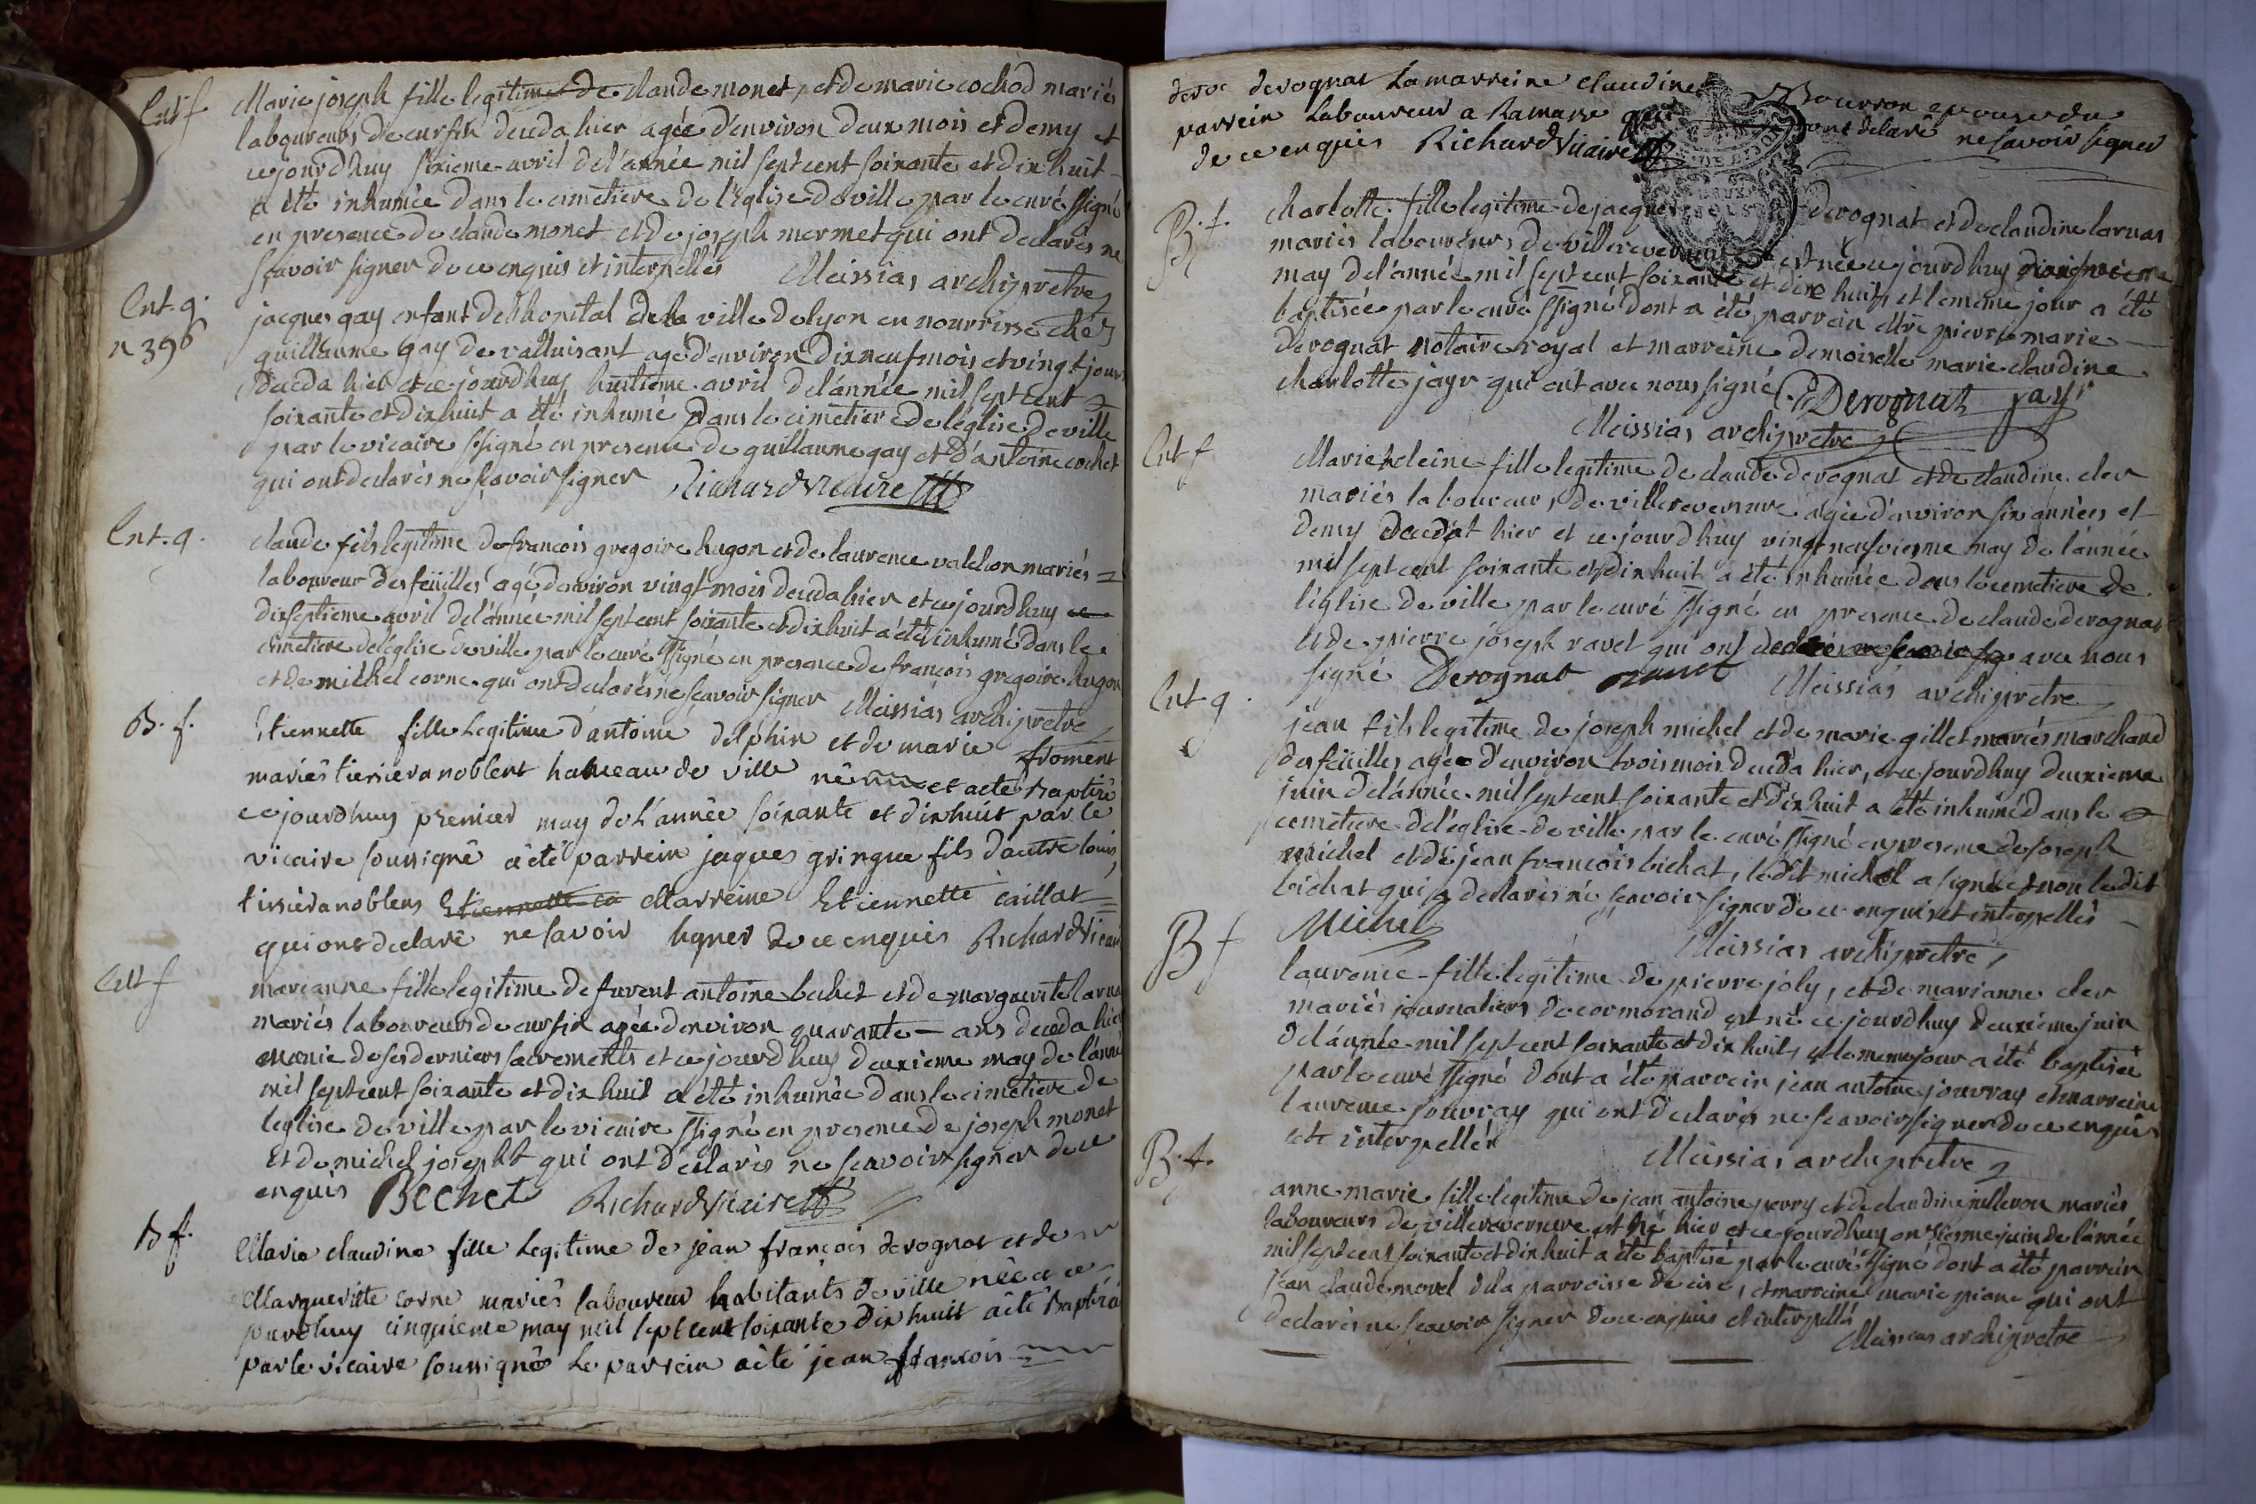 Ent f
Marie joseph fille legitime de claude monet, et de marie cochod mariés
laboureurs de cursin deceda hier agée d'environ deux mois et demy et
cejourdhuy sixieme avril de l'année mil sept cent soixante et dix huit
a été inhumée dans le cimetiere de l'église de ville par le curé ssigné
en presence de claude monet et de joseph mermet qui ont declarés ne
scavoir signer de ce enquis et interpellés Meissias archiprêtre
Ent. g.
n 396
jacques gay enfant de lhopital de la ville de lyon en nourrisse chés
guillaume gay de valluisant agé d'environ dix neuf mois et vingt jours
deceda hier et cejourdhuy huitieme avril de l'année mil sept cent
soixante et dix huit a été inhumé dans le cimetiere de l'église de ville
par le vicaire ssigné en presence de guillaume gay et d'antoine cochet
qui ont declarés ne scavoir signer Richard Vicaire
Ent. g.
claude fils legitime de francois gregoire hugon et de laurence valellon mariés
laboureur des feüilles agé denviron vingt mois deceda hier et cejourdhuy
dixseptieme avril de l'année mil sept cent soixante et dix huit a été inhumé dans le
cimetiere de l'église de ville par le curé ssigné en presence de francois gregoire hugon
et de michel corne qui ont declarés ne scavoir signer Meissias archiprêtre
B. f.
Etiennette fille legitime d'antoine delphin et de marie froment
mariés tissier a noblens hameau de ville né et a eté baptisé
cejourdhuy premier may de l'année soixante et dix huit par le
vicaire soussigné a été parrein jaques gringue fils d'autre louis
tissier a noblens Etiennette ca Marreine Etiennette caillat
qui ont declaré ne savoir signer de ce enquis Richard Vicaire
Ent f
marianne fille legitime de fuvent antoine bechet et de marguerite larua
mariés laboureurs de cursin agée denviron quarante ans deceda hier
munie de ses derniers sacrements et cejourdhuy deuxieme may de l'année
mil sept cent soixante et dix huit a été inhumée dans le cimetiere de
l'église de ville par le vicaire ssigné en presence de joseph monet
et de michel josepht qui ont declarés ne scavoir signer de ce
enquis Bechet Richard Vicaire
B f.
Marie claudine fille legitime de jean françois derognat et de
Marguerite corne mariés laboureur habitants de ville née a ce
jourdhuy cinquieme may mil sept cent soixante dix huit a été baptisé
par le vicaire soussigné le parrein a été jean françois
derognat La marreine claudine Bourron epouse du
parrein Laboureur a Ramasse qui ont declaré ne savoir signer
de ce enquis Richard Vicaire
B. f.
charlotte fille legitime de jacques derognat et de claudine larnas
mariés laboureurs de villereversure est née cejourdhuy
may de l'année mil sept cent soixante et dix huit, et le meme jour a été
baptisée par le curé ssigné dont a été parrein Mre pierre marie
derognat notaire royal et marreine demoiselle marie claudine
charlotte jayr qui ont avec nous signé Derognat jayr
Meissias archiprêtre
Ent f
Marie heleine fille legitime de claude derognat et de claudine cler
mariés laboureurs de villereversure agée d'environ six années et
demy deceda hier et cejourdhuy vingt neufvieme may de l'année
mil sept cent soixante et dix huit a été inhumée dans le cemetiere de
l'église de ville par le curé ssigné en presence de claude derognat
et de pierre joseph ravet qui ont avec nous
signé Derognat ravet Meissias archiprêtre
Ent. g.
jean fils legitime de joseph michel et de marie gillet mariés marchand
des feüilles agé d'environ trois mois deceda hier, et cejourdhuy deuxieme
juin de l'année mil sept cent soixante et dix huit a été inhumé dans le
cemetiere de l'église de ville par le curé ssigné en presence de joseph
michel et de jean francois bichat, ledit michel a signé et non ledit
bichat qui a declarés ne scavoir signer de ce enquis et interpellés
Michel Meissias archiprêtre
B f
laurence fille legitime de pierre joly, et de marianne cler
mariés journaliers de cormorand est né cejourdhuy deuxieme juin
de l'année mil sept cent soixante et dix huit, et le meme jour a été baptisée
par le curé ssigné dont a été parrein jean antoine jouvray et marreine
laurence jouvray qui ont declarés ne scavoir signer de ce enquis
et interpellés
Meissias archiprêtre
B. f.
anne marie fille legitime de jean antoine perry et de claudine mariés
laboureurs de villereversure est né hier et cejourdhuy onzieme juin de l'année
mil sept cent soixante et dix huit a été baptisé par le curé ssigné dont a été parrein
jean claude morel de la parroisse de cise, et marreine marie piane qui ont
declarés ne scavoir signer de ce enquis et interpellés
Meissias archiprêtre